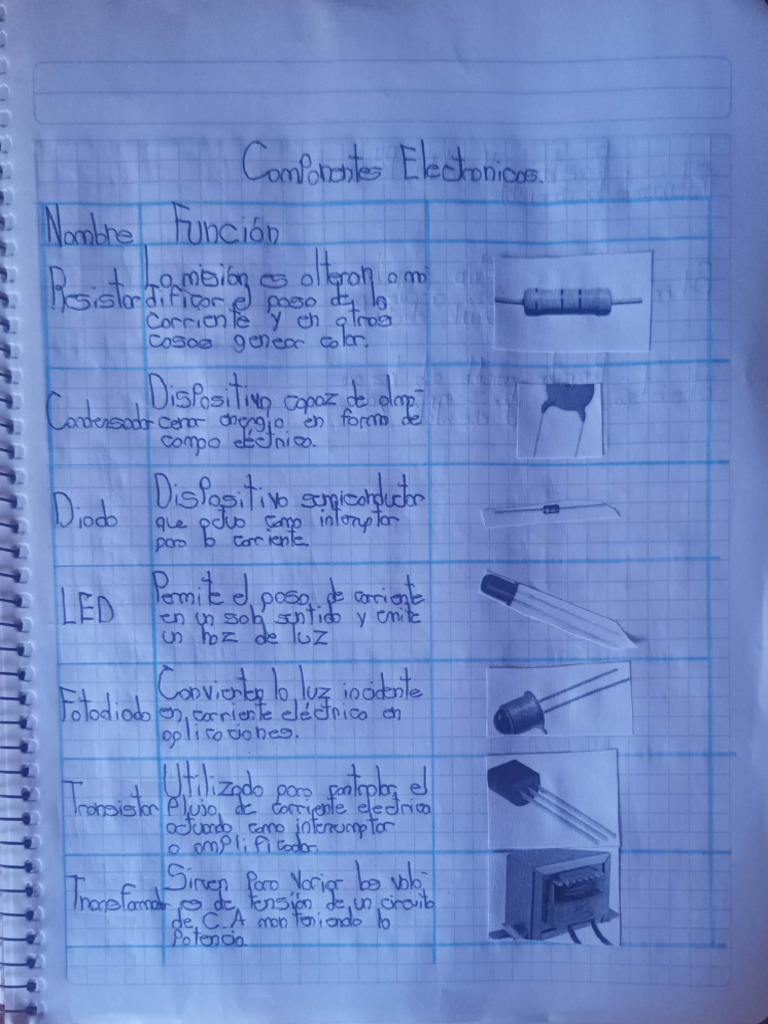 Componentes Electronicos.
Nombre Función
Resistor La misión es alteran o mo
dificar el paso de la
corriente y en otros
casos generar calor.
Condensador Dispositivo capaz de alma-
cenar energia en forma de
campo eléctrico.
Diodo Dispositivo semiconductor
que actua como interruptor
para la corriente.
LED Permite el paso de corriente
en un solo sentido y emite
un haz de luz
Fotodiodo Convierten la luz incidente
en corriente eléctrica en
aplicaciones.
Transistor Utilizado para controlar el
flujo de corriente electrica
actuando como interrumptor
o amplificador.
Transformador Sirven para variar los valo-
res de tensión de un circuito
de C.A manteniendo la
Potencia.